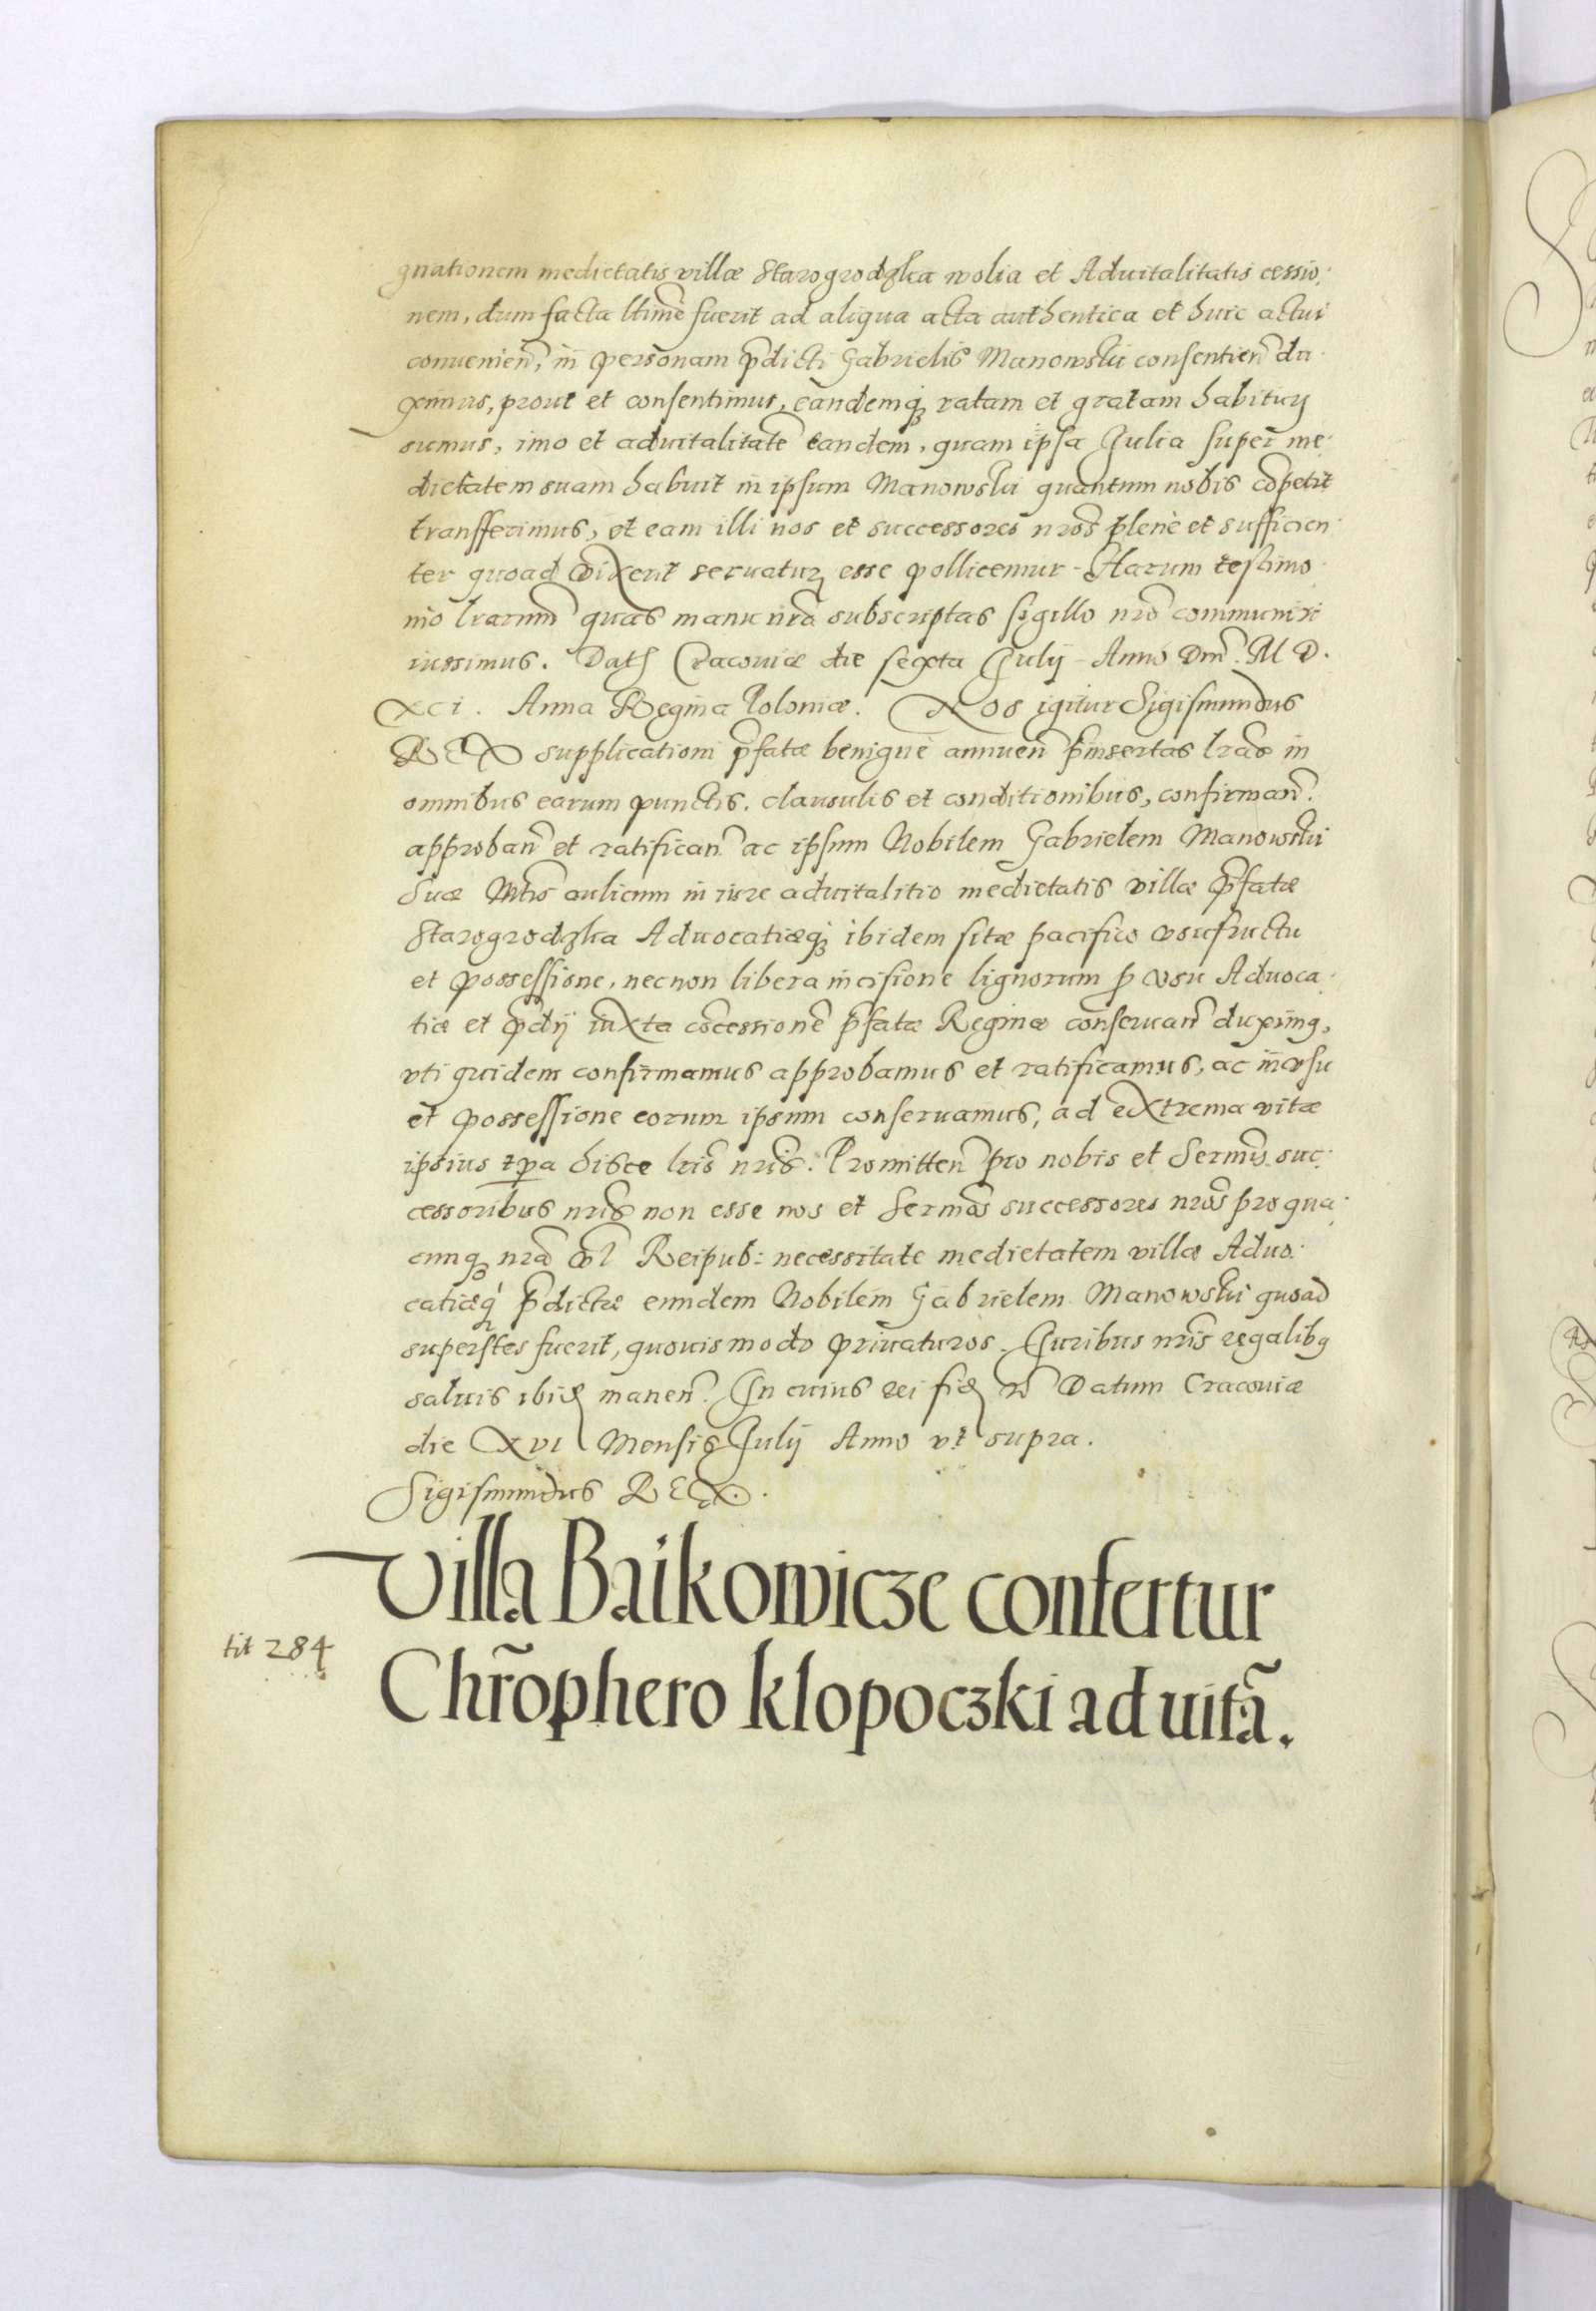 gnationem medietatis villæ Starogrodzka wolia et Aduitalitatis cessio-
nem, dum facta ltimẽ fuerit ad aliqua acta authentica et huic actui
conuenieñ, in personam p̃dicti Gabrielis Manowskii consentieñ du-
ximus, prout et consentimus, eandemq; ratam et gratam habituri
sumus, imo et aduitalitatẽ eandem, quam ipsa Julia super me-
dietatem suam habuit in ipsum Manowskii quantum nobis cõpetit
transferimus, et eam illi nos et successores nros̃ plenè et sufficien-
ter quoad vixerit seruaturi esse pollicemur. Harum testimo-
nio lrarum̃ quas manu nrã subscriptas sigillo nrõ communiri
iussimus. Dat Cracouiæ die sexta Julij Anno Dm̃. M D.
XCI. Anna Regina Poloniæ. NOS igitur Sigismundus
REX supplicationi p̃fatæ benigne annueñ p̃insertas lras̃ in
omnibus earum punctis, clausulis et conditionibus, confirmañ.
approbañ et ratificañ ac ipsum Nobilem Gabrielem Manowskii
Suæ Mtis aulicum in iure aduitalitio medietatis villæ p̃fatæ
Starogrodzka Aduocatiæq; ibidem sitæ pacifico vsufructu
et possessione, necnon libera incisione lignorum p vsu Aduoca-
tiæ et p̃dij iuxta cõcessionẽ p̃fatæ Reginæ conseruañ duximq,
vti quidem confirmamus approbamus et ratificamus, ac in vsu
et possessione eorum ipsum conseruamus, ad extrema vitæ
ipsius tpa hisce lris̃ nris̃. Promitteñ pro nobis et Sermis̃ suc-
cessoribus nris̃ non esse nos et Sermos̃ successores nros̃ pro qua-
cunq; nrã vl̃ Reipub: necessitate medietatem villæ Aduo-
catiæq; p̃dictæ eundem Nobilem Gabrielem Manowskii quoad
superstes fuerit, quouis modo priuaturos. Juribus nris̃ regalibq
saluis ibid manen̄. In cuius rei fid Datum Cracouiæ
die XVI Mensis Julij Anno vt supra.
Sigismundus REX.
Villa Baikowicze confertur
tit 284
Chrõphero klopoczki ad uitã.